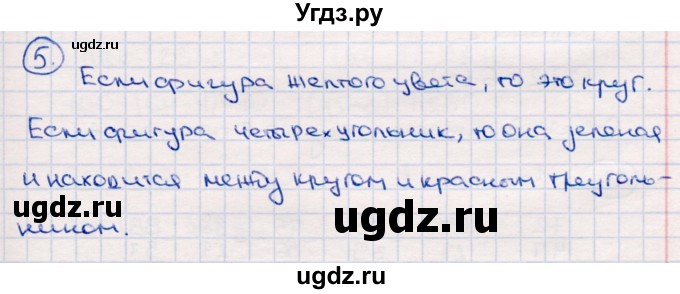 Угдз.ру
5.
Если фигура желтого цвета, то это круг.
Если фигура четырехугольник, то она зеленая
и находится между кругом и красным треуголь-
ником.
ugdz.ru
ugdz.ru
ugdz.ru
ugdz.ru
ugdz.ru
ugdz.ru